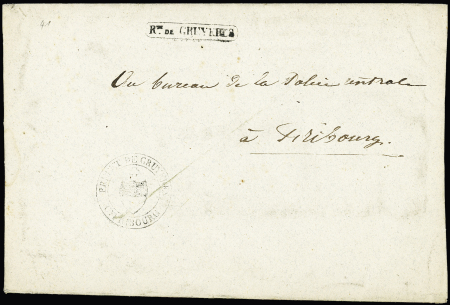 41
Rte DE GRUYERES
Au bureau de la Police centrale
à Fribourg.
PREFET DE GRUYERE
FRIBOURG